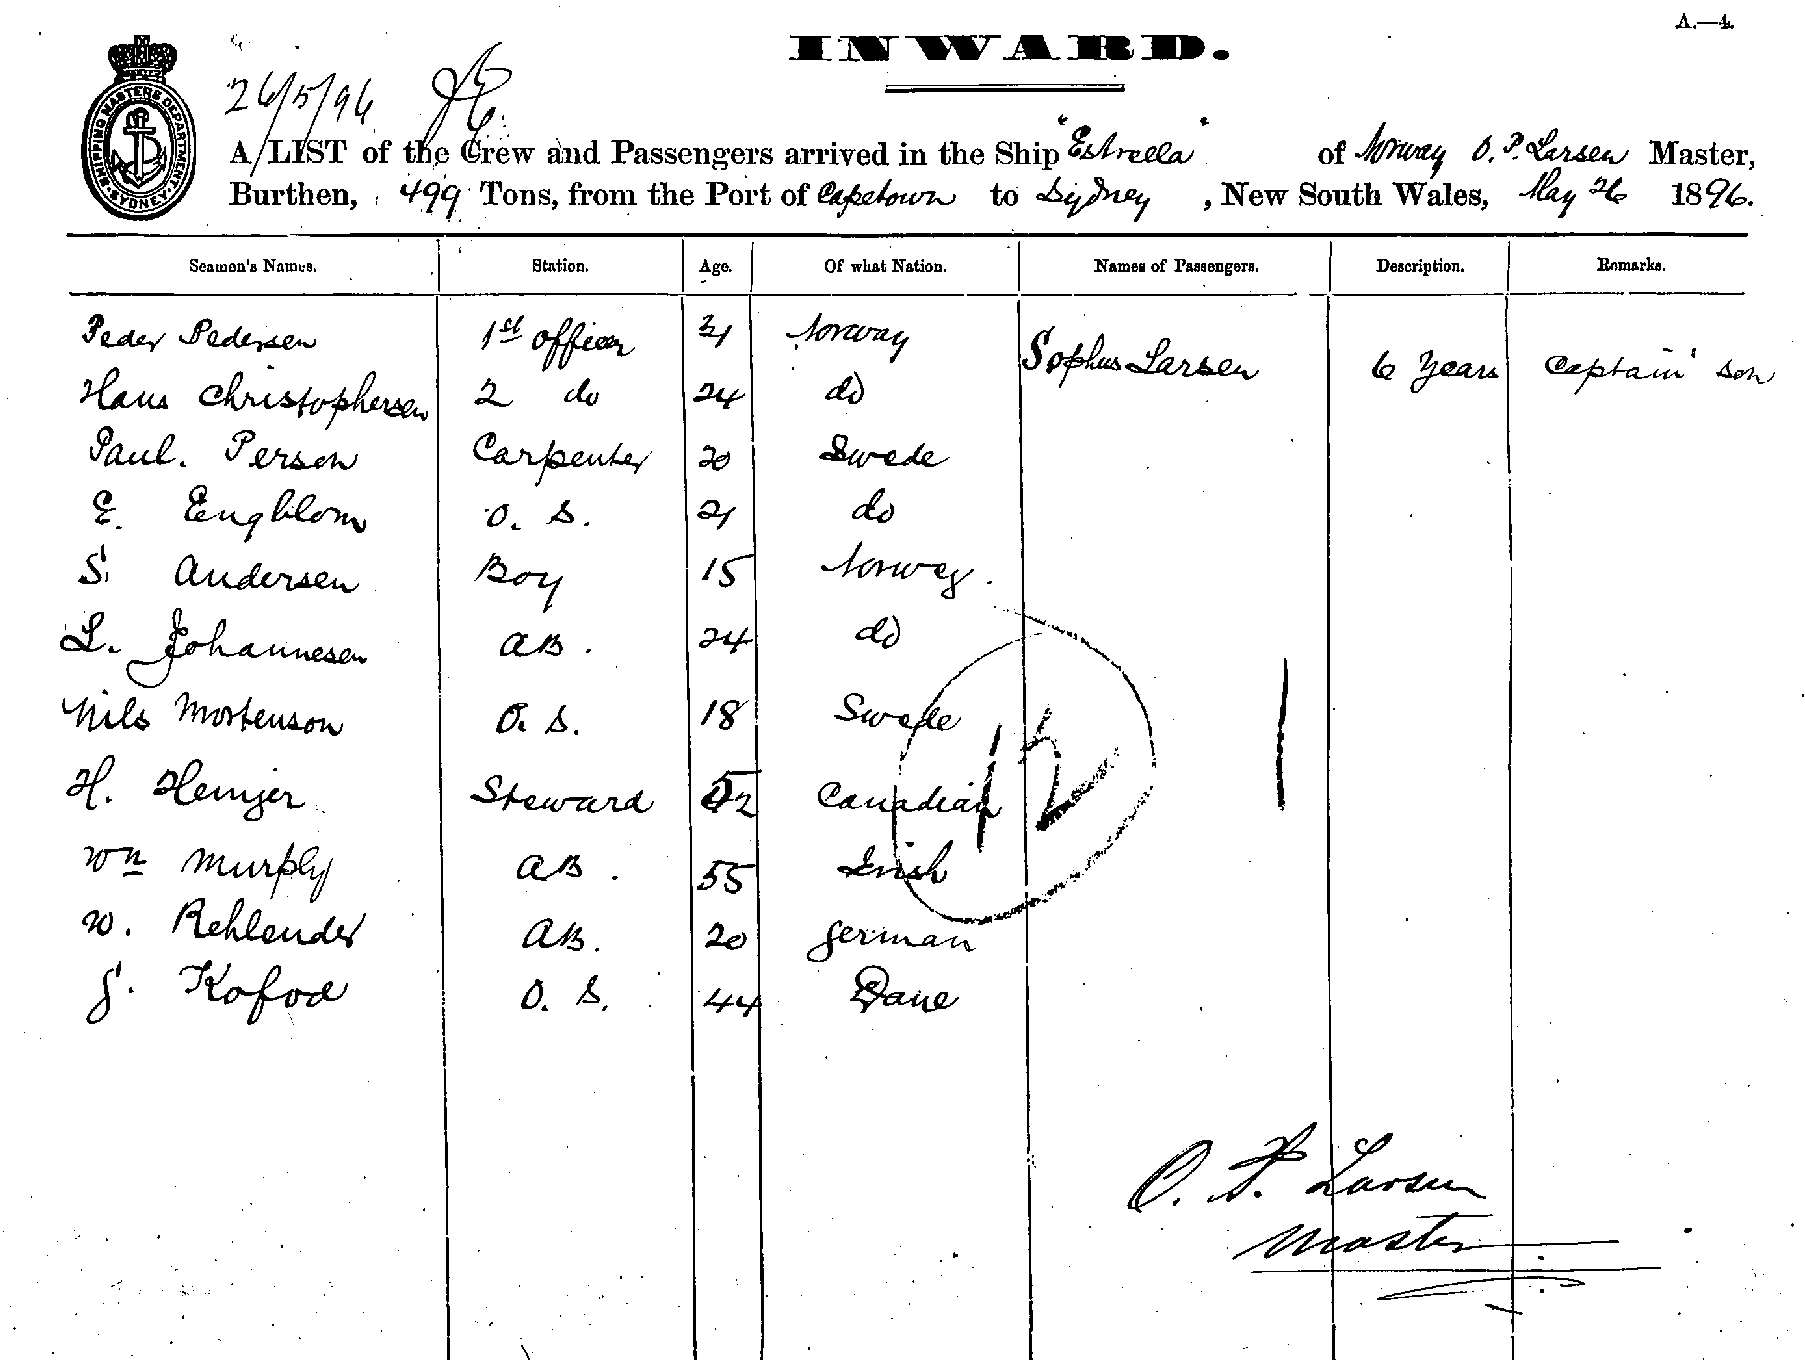 A.—4.
INWARD.
SHIPPING MASTERS DEPARTMENT. SYDNEY.
26/5/96
A LIST of the Crew and Passengers arrived in the Ship "Estrella" of Norway O. P. Larsen Master,
Burthen, 499 Tons, from the Port of Capetown to Sydney, New South Wales, May 26 1896.
Seamen's Names. Station. Age. Of what Nation. Names of Passengers. Description. Remarks.
Peder Pedersen 1st officer 31 Norway Sophus Larsen 6 years Captain' son
Hans Christophersen 2 do 24 do
Paul. Person Carpenter 20 Swede
E. Engblom O. S. 21 do
S. Andersen Boy 15 Norweg.
L. Johannesen AB. 24 do
Nils Mortenson O. S. 18 Swede
H. Steward Canadian
Wm Murply AB. 55 Irish
W. Rehlender AB. 20 German
Kofod O. S. 44 Dane
12 1
O. P. Larsen
Master